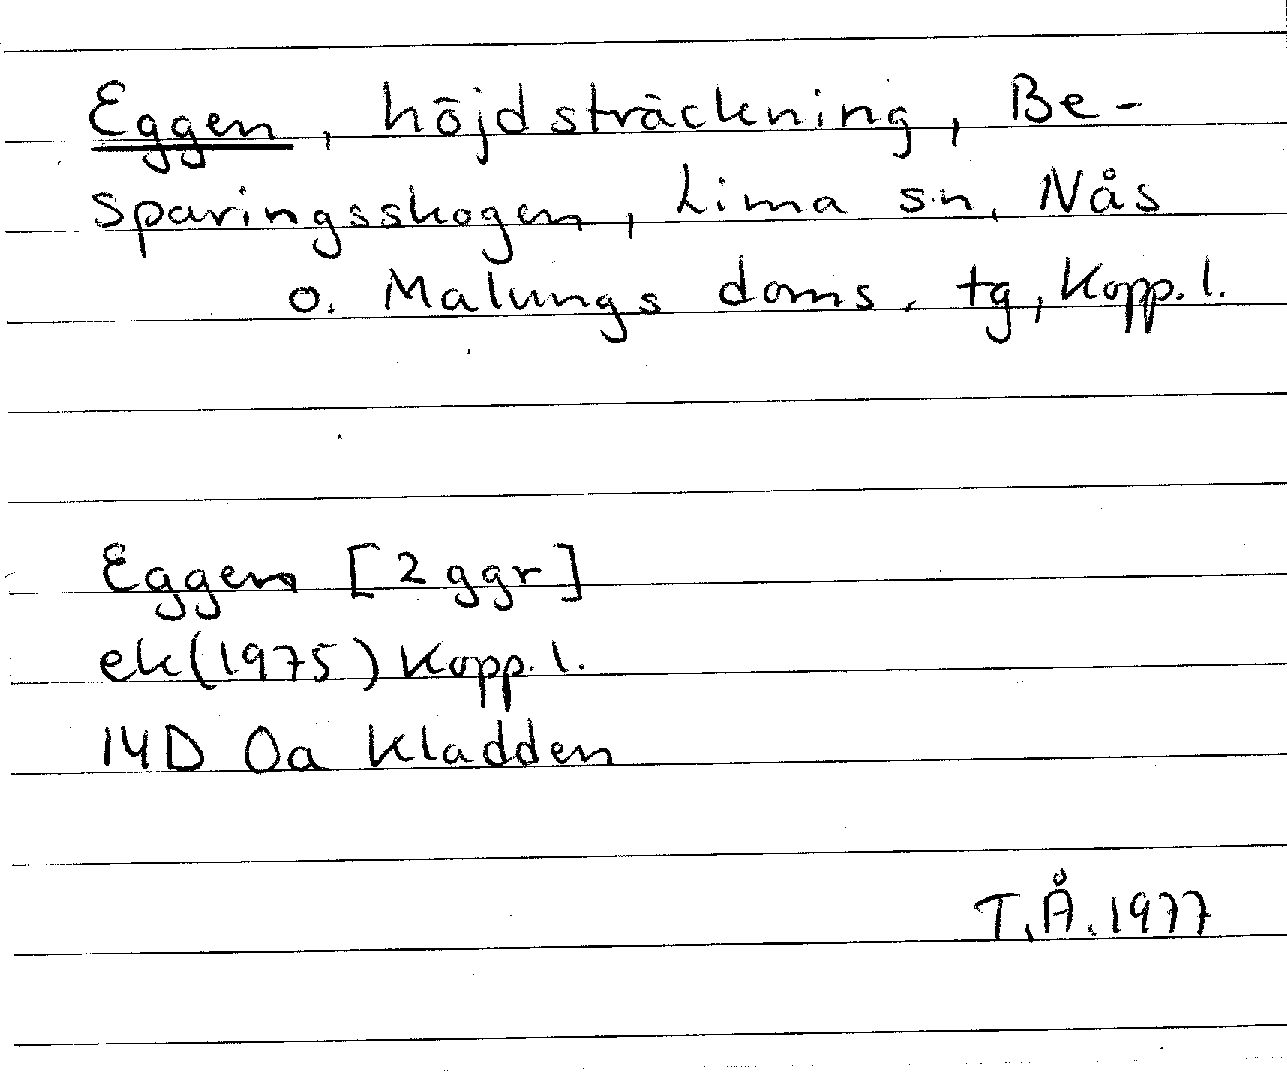 Eggen, höjdsträckning, Be-
sparingsskogen, Lima sn, Nås
o. Malungs doms. tg, Kopp. l.
Eggen [2 ggr]
ek (1975) Kopp. l.
14D 0a Kladden
T.Å. 1977